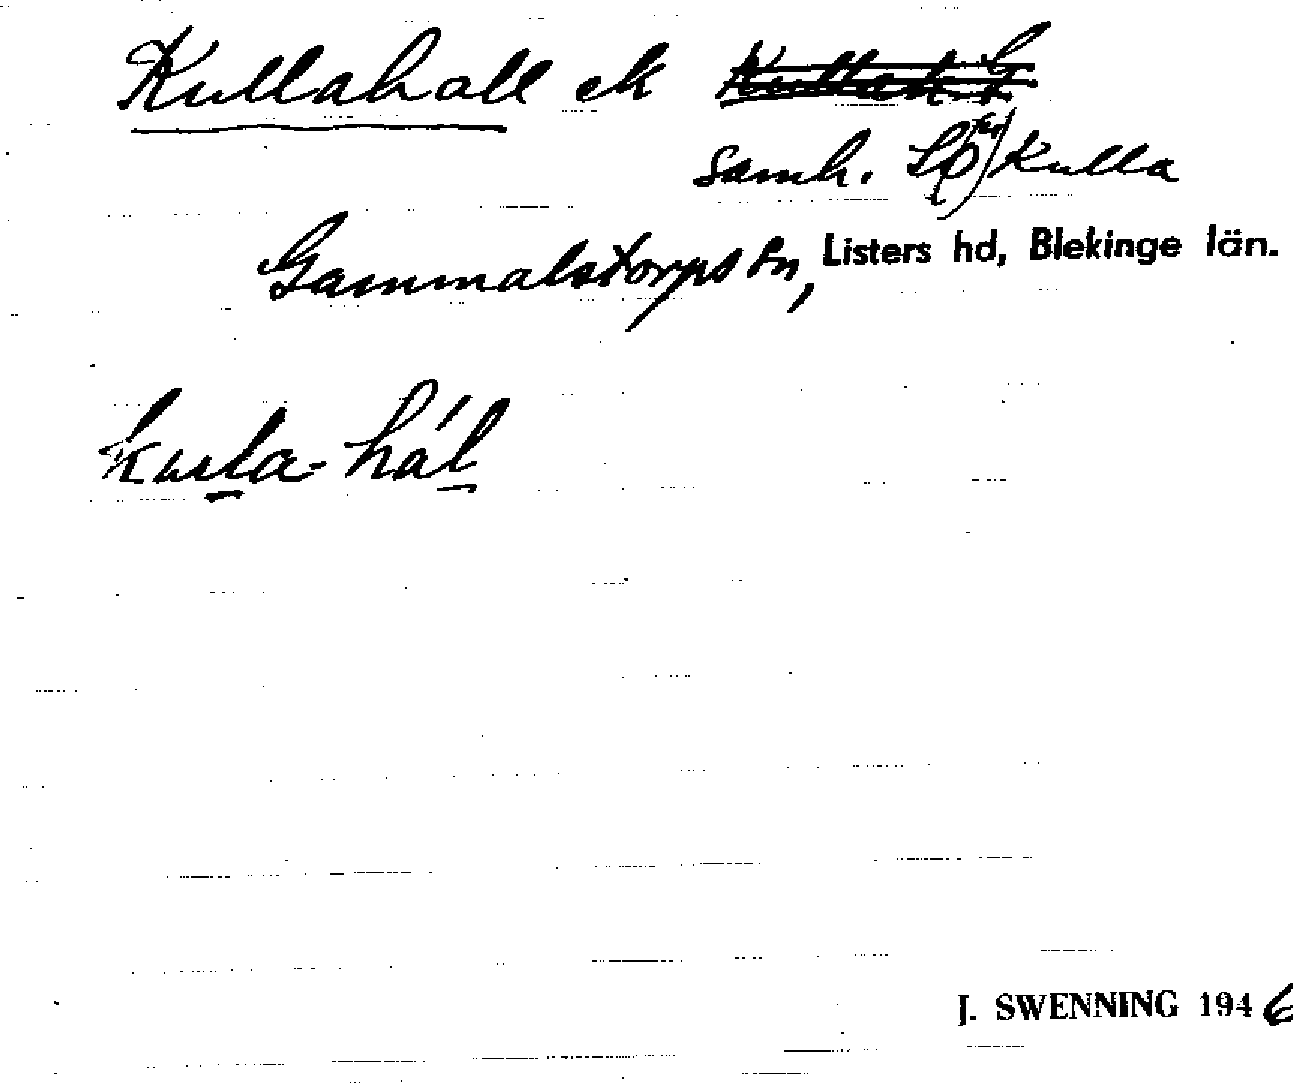 Kullahall ek
samh. Kulla
Gammalstorps sn, Listers hd, Blekinge län.
kulla-hál
J. SWENNING 1946